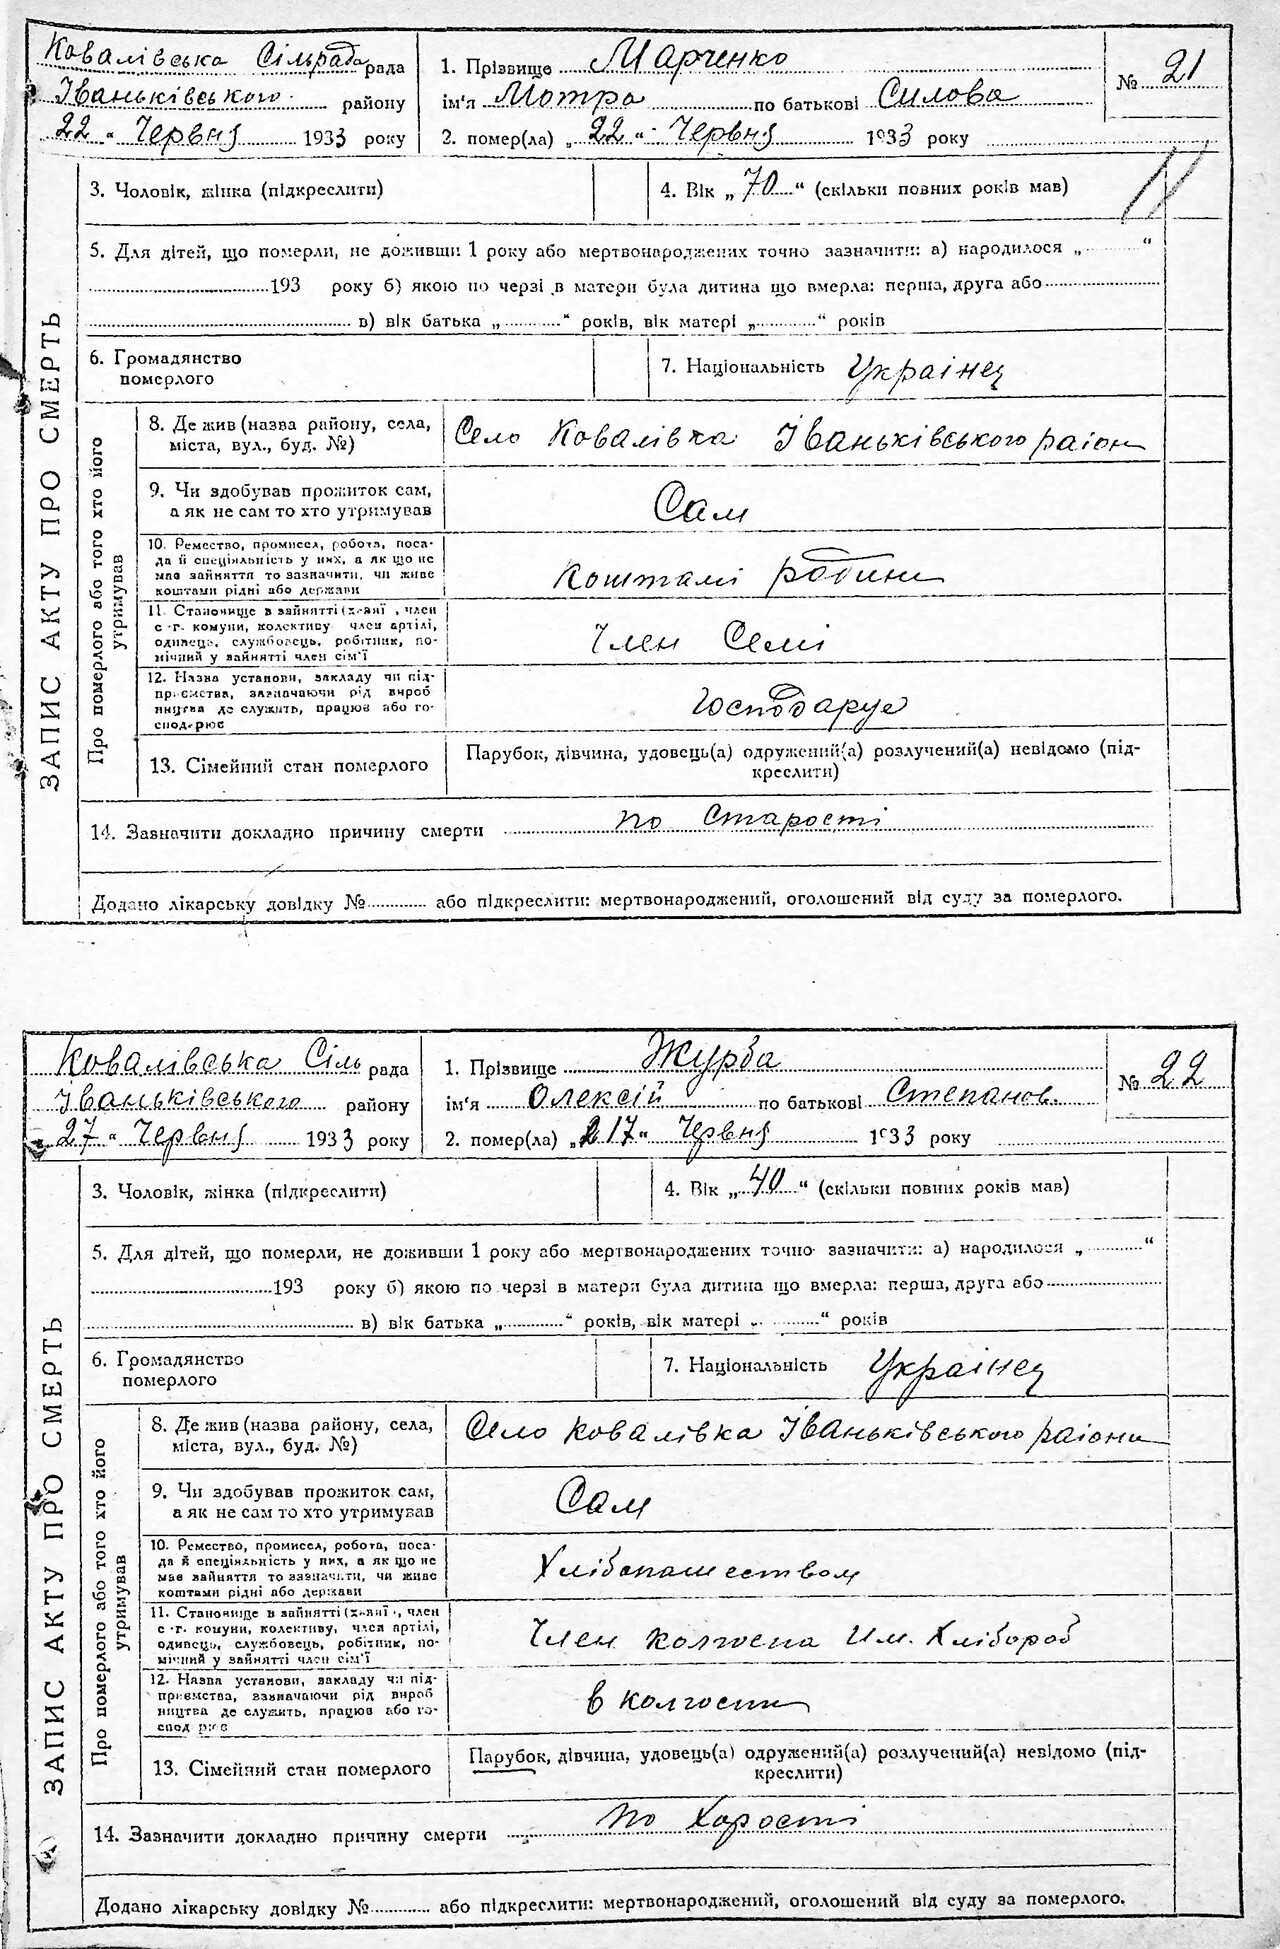 Ковалівська Сільрада рада
Іваньківського району
22 " Червня 1933 року
1. Прізвище Марченко
ім'я Мотра по батькові Силова
2. помер(ла) „ 22 " Червня 1933 року
№ 21
3. Чоловік, жінка (підкреслити)
4. Вік „ 70 " (скільки повних років мав)
5. Для дітей, що померли, не доживши 1 року або мертвонароджених точно зазначити: а) народилося „ "
193 року б) якою по черзі в матери була дитина що вмерла: перша, друга або
в) вік батька „ " років, вік матері „ " років
6. Громадянство
померлого
7. Національність Украінец
ЗАПИС АКТУ ПРО СМЕРТЬ
Про померлого або того хто його
утримував
8. Де жив (назва району, села,
міста, вул., буд. №)
Село Ковалівка Іваньківського район
9. Чи здобував прожиток сам,
а як не сам то хто утримував
Сам
10. Ремество, промисел, робота, поса-
да й спеціяльність у них, а як що не
має зайняття то зазначити, чи живе
коштами рідні або держави
Коштамі родини
11. Становище в зайнятті (х-яї , член
с-г. комуни, колективу член артілі,
одинець, службовець, робітник, по-
мічний у зайнятті член сім'ї
Член Семі
12. Назва установи, закладу чи під-
приємства, зазначаючи рід вироб
ництва де служить, працює або го-
сподарює
Господарує
13. Сімейний стан померлого
Парубок, дівчина, удовець(а) одружений(а) розлучений(а) невідомо (під-
креслити)
14. Зазначити докладно причину смерти по Старості
Додано лікарську довідку № або підкреслити: мертвонароджений, оголошений від суду за померлого.
Ковалівська Сіль рада
Іваньківського району
27 " Червня 1933 року
1. Прізвище Журба
ім'я Олексій по батькові Степанов.
2. помер(ла) „ 17 " Червня 1933 року
№ 22
3. Чоловік, жінка (підкреслити)
4. Вік „ 40 " (скільки повних років мав)
5. Для дітей, що померли, не доживши 1 року або мертвонароджених точно зазначити: а) народилося „ "
193 року б) якою по черзі в матери була дитина що вмерла: перша, друга або
в) вік батька „ " років, вік матері „ " років
6. Громадянство
померлого
7. Національність Украінец
ЗАПИС АКТУ ПРО СМЕРТЬ
Про померлого або того хто його
утримував
8. Де жив (назва району, села,
міста, вул., буд. №)
Село Ковалівка Іваньківського раіони
9. Чи здобував прожиток сам,
а як не сам то хто утримував
Сам
10. Ремество, промисел, робота, поса-
да й спеціяльність у них, а як що не
має зайняття то зазначити, чи живе
коштами рідні або держави
Хлібопашеством
11. Становище в зайнятті (х-яї , член
с-г. комуни, колективу, член артілі,
одинець, службовець, робітник, по-
мічний у зайнятті член сім'ї
Член колгоспа Им. Хлібороб
12. Назва установи, закладу чи під-
приємства, зазначаючи рід вироб
ництва де служить, працює або го-
спод рює
в колгоспи
13. Сімейний стан померлого
Парубок, дівчина, удовець(а) одружений(а) розлучений(а) невідомо (під-
креслити)
14. Зазначити докладно причину смерти по Хорості
Додано лікарську довідку № або підкреслити: мертвонароджений, оголошений від суду за померлого.